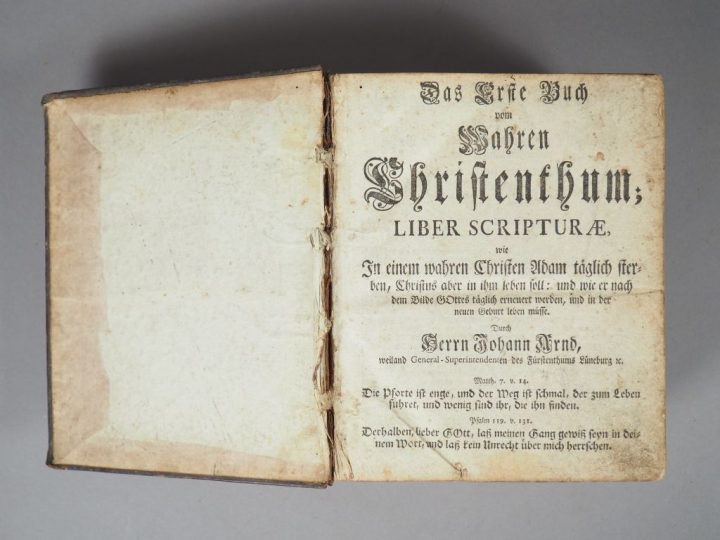 Das Erste Buch
vom
Wahren
Christenthum;
LIBER SCRIPTURÆ,
wie
In einem wahren Christen Adam täglich ster-
ben, Christus aber in ihm leben soll: und wie er nach
dem Bilde GOttes täglich erneuert werden, und in der
neuen Geburt leben müsse.
Durch
Herrn Johann Arnd,
weiland General-Superintendenten des Fürstenthums Lüneburg ꝛc.
Matth. 7. v. 14.
Die Pforte ist enge, und der Weg ist schmal, der zum Leben
führet, und wenig sind ihr, die ihn finden.
Psalm 119. v. 131.
Derhalben, lieber GOtt, laß meinen Gang gewiß seyn in dei-
nem Wort, und laß kein Unrecht über mich herrschen.